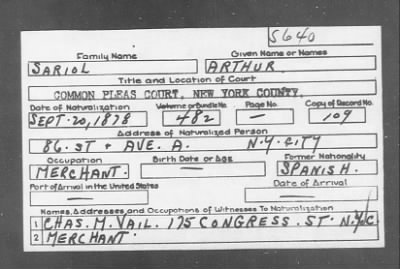 S640
Family Name Given Name or Names
SARIOL ARTHUR
Title and Location of Court
COMMON PLEAS COURT, NEW YORK COUNTY.
Date of Naturalization Volume or Bundle No. Page No. Copy of Record No.
SEPT. 20, 1878 482 — 109
Address of Naturalized Person
86. ST + AVE. A. N.Y. CITY
Occupation Birth Date or Age Former Nationality
MERCHANT. — SPANISH.
Port of Arrival in the United States Date of Arrival
— —
Names, Addresses and Occupations of Witnesses To Naturalization
1 CHAS. M. VAIL. 175 CONGRESS. ST. N.Y.C.
2 MERCHANT.